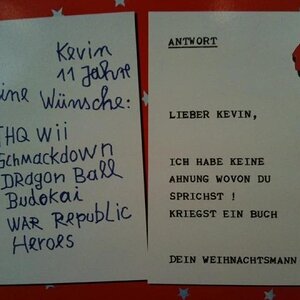 Kevin
11 Jahre
ine Wünsche:
THQ Wii
Schmackdown
DRagon Ball
Budokai
WAR Republic
Heroes
ANTWORT
LIEBER KEVIN,
ICH HABE KEINE
AHNUNG WOVON DU
SPRICHST !
KRIEGST EIN BUCH
DEIN WEIHNACHTSMANN